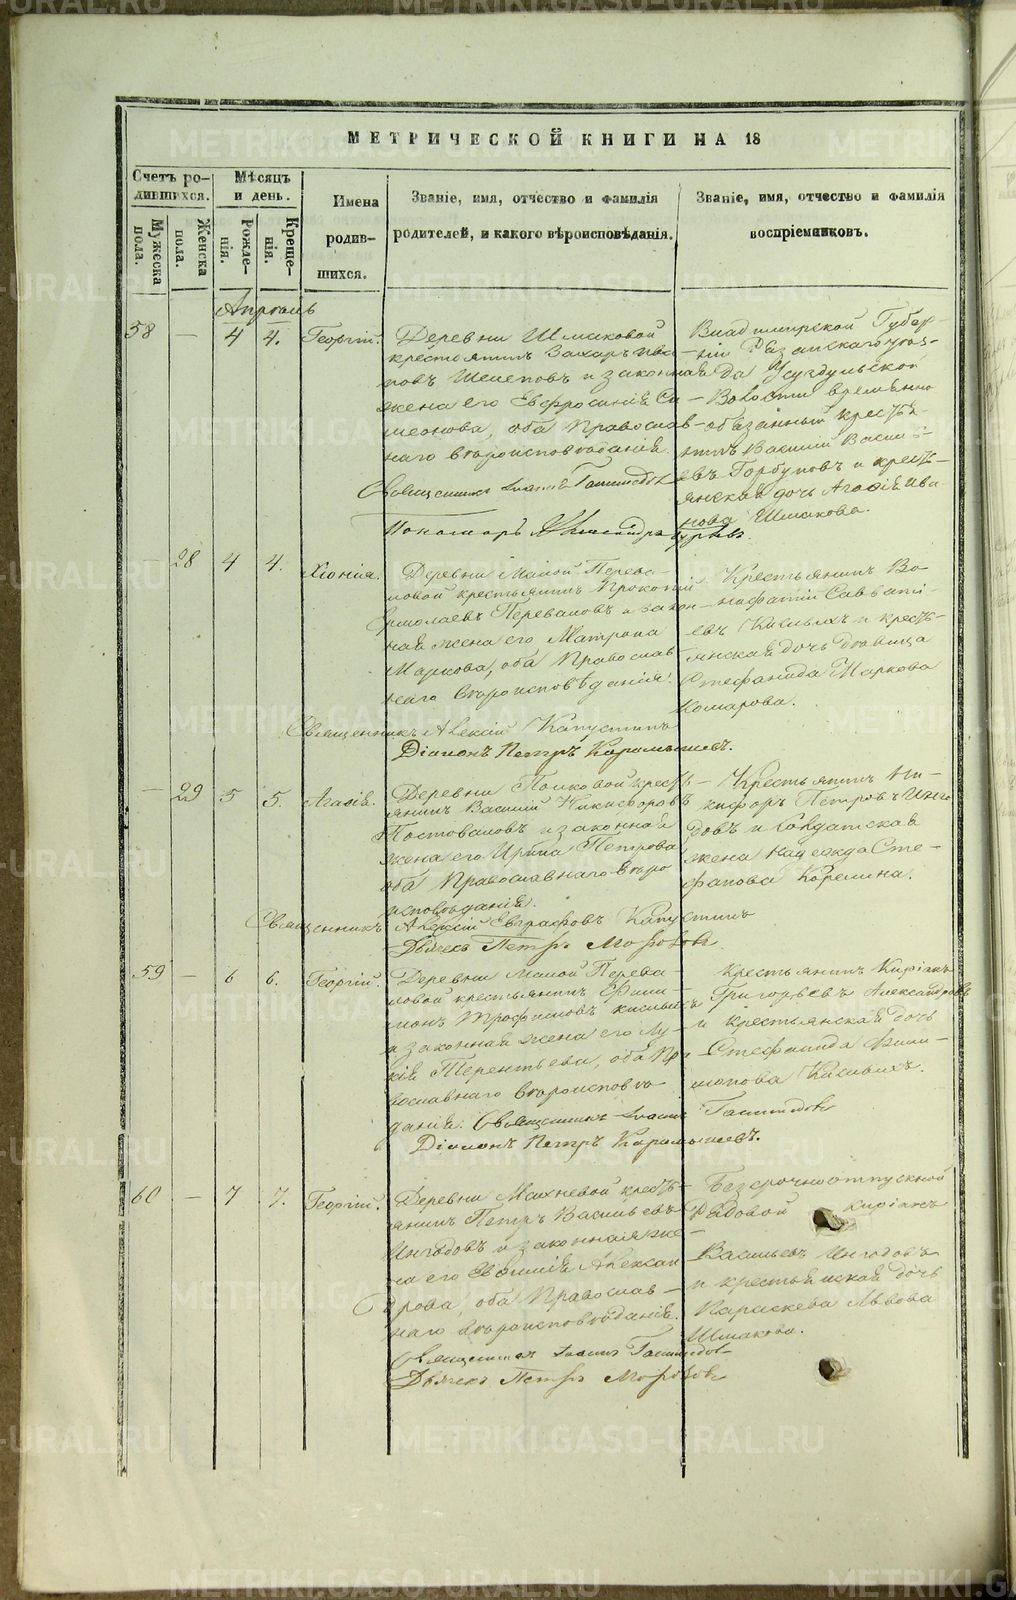 МЕТРИЧЕСКОЙ КНИГИ НА 18
Счетъ родившихся.
Мѣсяцъ и день.
Имена родившихся.
Званіе, имя, отчество и фамилія родителей, и какого вѣроисповѣданія.
Званіе, имя, отчество и фамилія воспріемниковъ.
Мужеска пола.
Женска пола.
Рожденія.
Крещенія.
Апрель
58 — 4 4. Георгій.
Деревни Шмаковой
крестьянинъ Захаръ Ива-
новъ Шелеповъ и законная
жена его Евфросинія Си-
меонова, оба Православ-
наго вѣроисповѣданія.
Священникъ Іоаннъ
Пономарь Александръ
Владимирской Губер-
ніи уѣз-
да
Волости временно
обязанный кресть-
янинъ Василий Василь-
евъ Горбуновъ и кресть-
янская дочь Агафія Ива-
нова Шмакова.
— 28 4 4. Хіонія.
Деревни Малой Перева-
ловой крестьянинъ Прокопій
Ермолаевъ Переваловъ и закон-
ная жена его Матрона
Маркова, оба Православ-
наго вѣроисповѣданія.
Священникъ Алексій Капустинъ
Діаконъ Петръ Карамышевъ.
Крестьянинъ Во-
нифатій Савваті-
евъ Кислыхъ и кресть-
янская дочь девица
Стефанида Маркова
Комарова.
— 29 5 5. Агафія.
Деревни кресть-
янинъ Василий Никифоровъ
Постоваловъ и законная
жена его Ирина Петрова
оба Православнаго вѣро-
исповѣданія.
Священникъ Алексій Евграфовъ Капустинъ
Дьячекъ Петръ Морозовъ
Крестьянинъ Ни-
кифоръ Петровъ Инго-
довъ и Солдатская
жена Надежда Сте-
фанова Корелина.
59 — 6 6. Георгій.
Деревни Малой Перева-
ловой крестьянинъ Фили-
монъ Трофимовъ Кислыхъ
и законная жена его Лу-
кія Терентьева, оба Пра-
вославнаго вѣроисповѣ-
данія. Священникъ Іоаннъ
Діаконъ Петръ Карамышевъ.
Крестьянинъ Киріакъ
Григорьевъ Александровъ
и крестьянская дочь
Стефанида Фили-
монова Кислыхъ.
60 — 7 7. Георгій.
Деревни Махневой кресть-
янинъ Петръ Васильевъ
Ингодовъ и законная же-
на его Евфимія Алексан-
дрова, оба Православ-
наго вѣроисповѣданія.
Священникъ Іоаннъ
Дьячекъ Петръ Морозовъ
Безсрочноотпускной
Рядовой Киріакъ
Васильевъ Ингодовъ
и крестьянская дочь
Параскева Львова
Шмакова.
METRIKI.GASO-URAL.RU